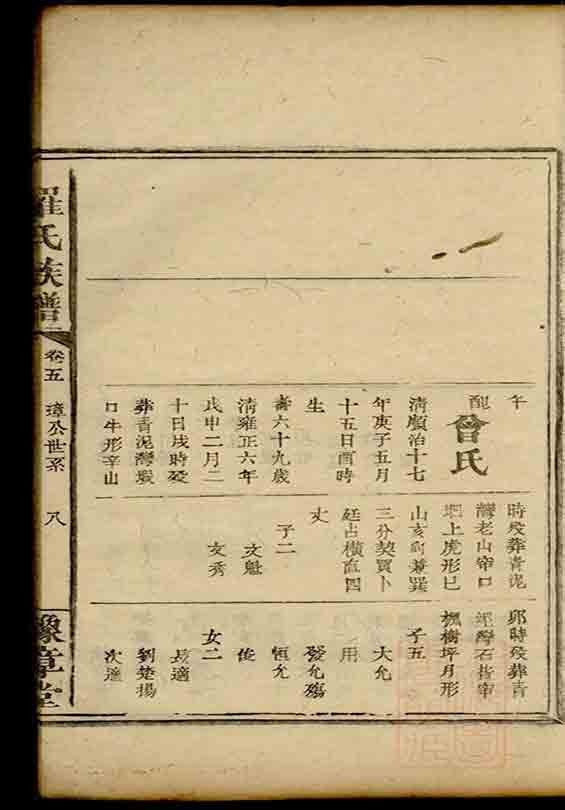 羅氏族譜
卷五
璋公世系
八
豫章堂
午
配曾氏
清順治十七
年庚子五月
十五日酉時
生
壽六十九歲
清雍正六年
戊申二月二
十日戌時歿
葬青泥灣塅
口牛形辛山
時歿葬青泥
灣老山帘口
上虎形巳
山亥向兼巽
三分契買卜
廷占橫直四
丈
子二
文魁
文秀
卯時歿葬青
泥灣石
楓樹坪月形
子五
大允
用
發允殤
恒允
俊
女二
長適
劉楚揚
次適